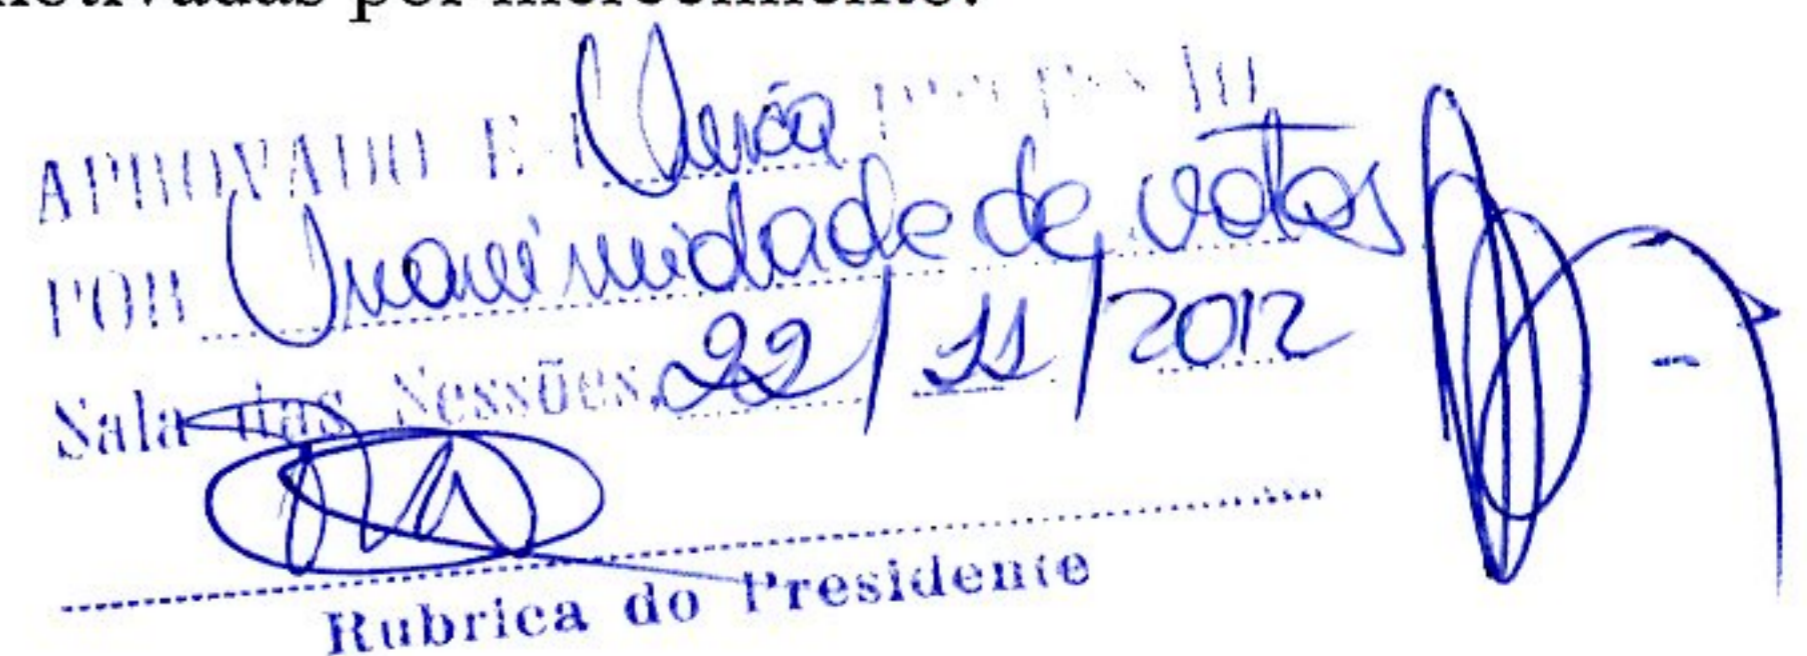 por
APROVADO E Única
POR Unanimidade de votos
Sala das Sessões, 22/11/2012
Rubrica do Presidente